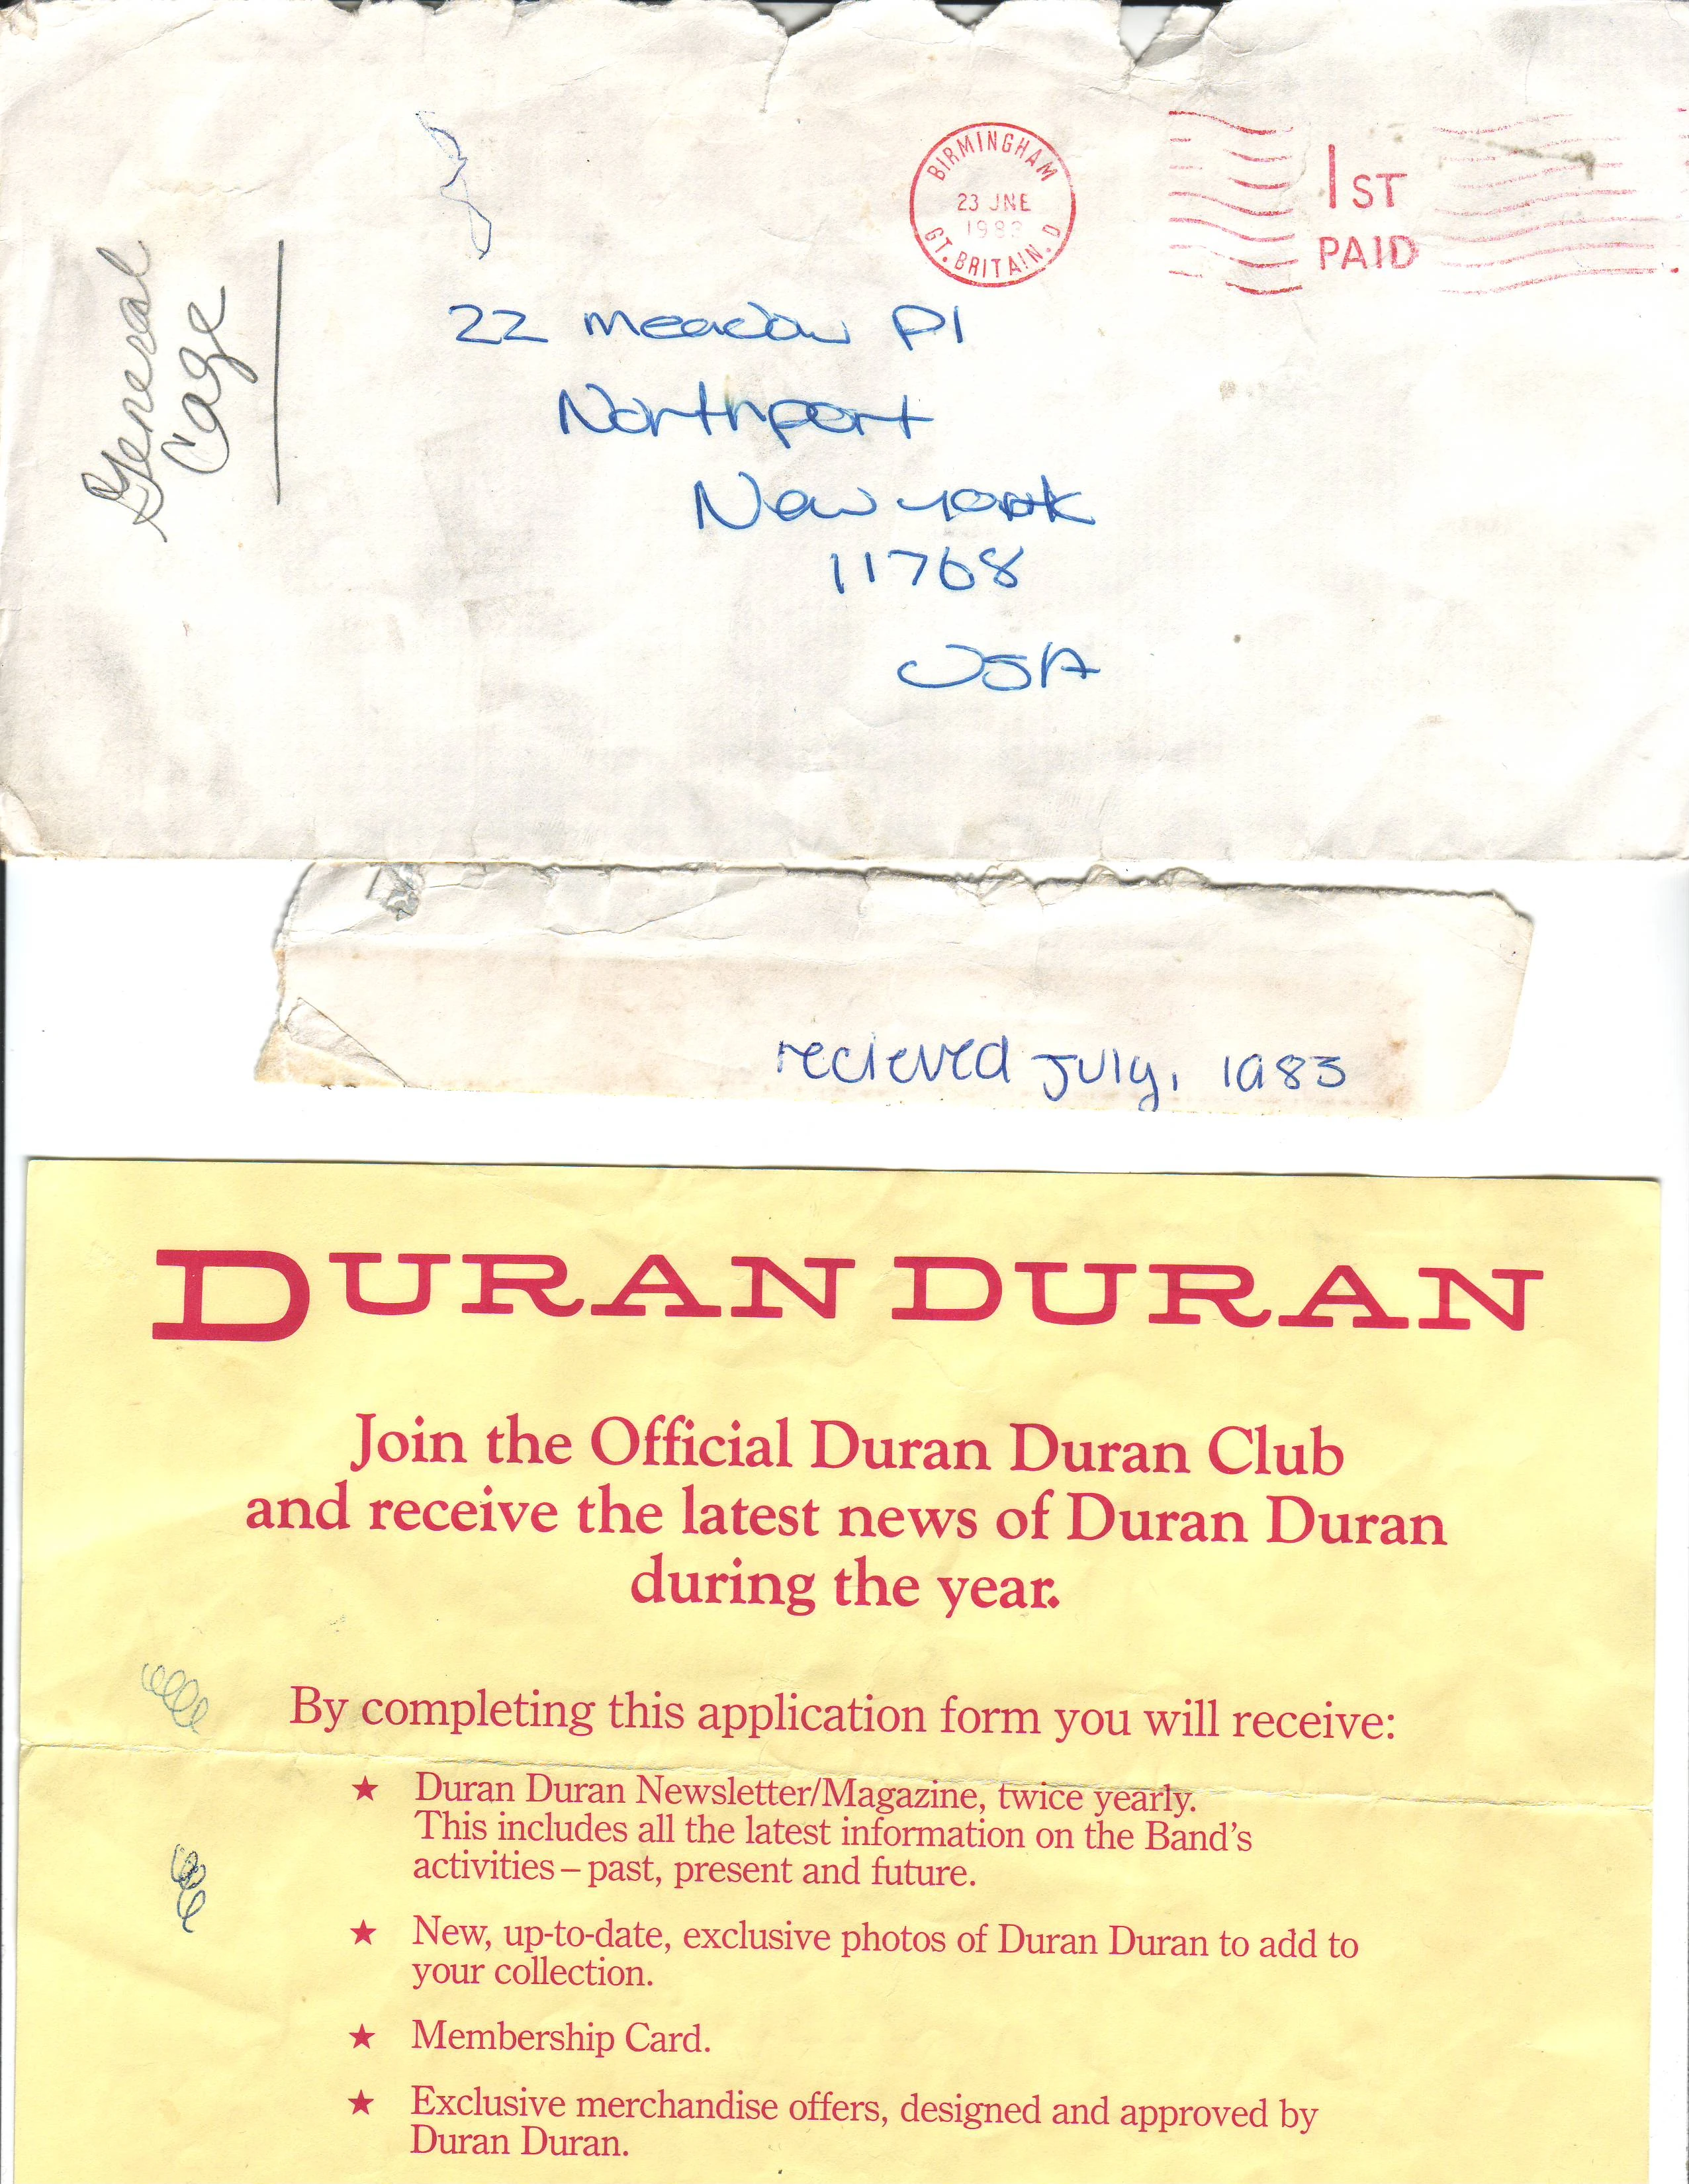 BIRMINGHAM
23 JNE
1983
GT. BRITAIN. D
1ST
PAID
General
Cage
22 meadow Pl
Northport
New york
11768
USA
recieved July, 1983
DURAN DURAN
Join the Official Duran Duran Club
and receive the latest news of Duran Duran
during the year.
By completing this application form you will receive:
★ Duran Duran Newsletter/Magazine, twice yearly.
This includes all the latest information on the Band's
activities – past, present and future.
★ New, up-to-date, exclusive photos of Duran Duran to add to
your collection.
★ Membership Card.
★ Exclusive merchandise offers, designed and approved by
Duran Duran.